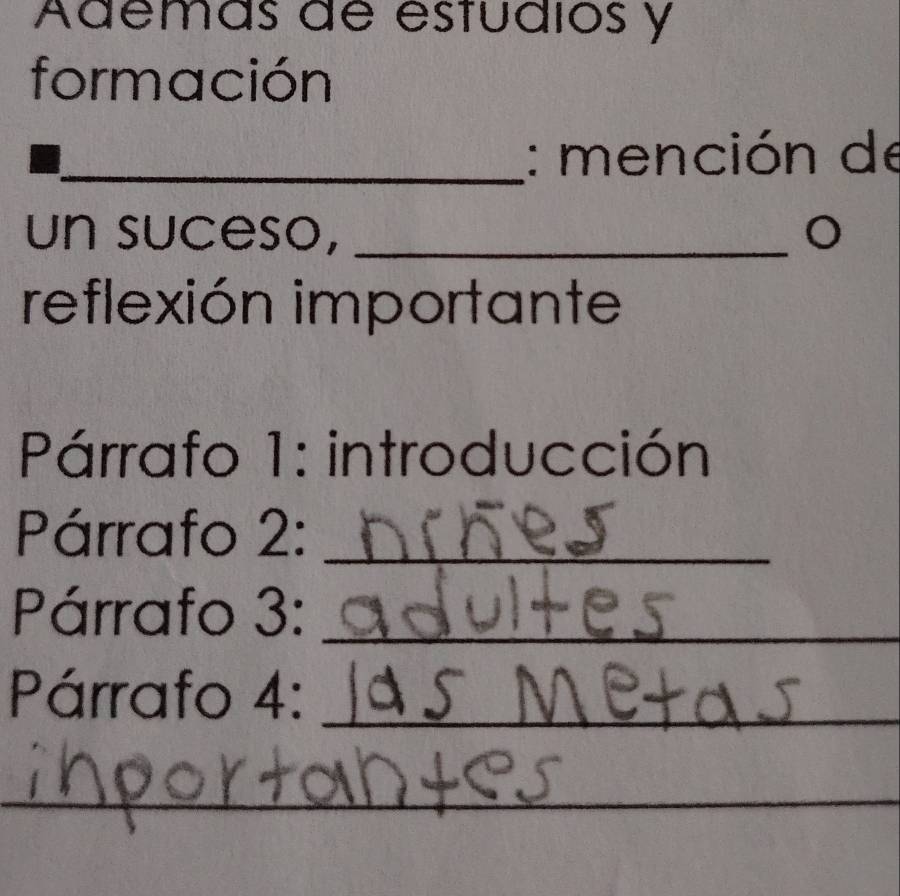 Además de estudios y
formación
■____________: mención de
un suceso, ____________ o
reflexión importante
Párrafo 1: introducción
Párrafo 2: niñes
Párrafo 3: adultes
Párrafo 4: las Metas
inportantes